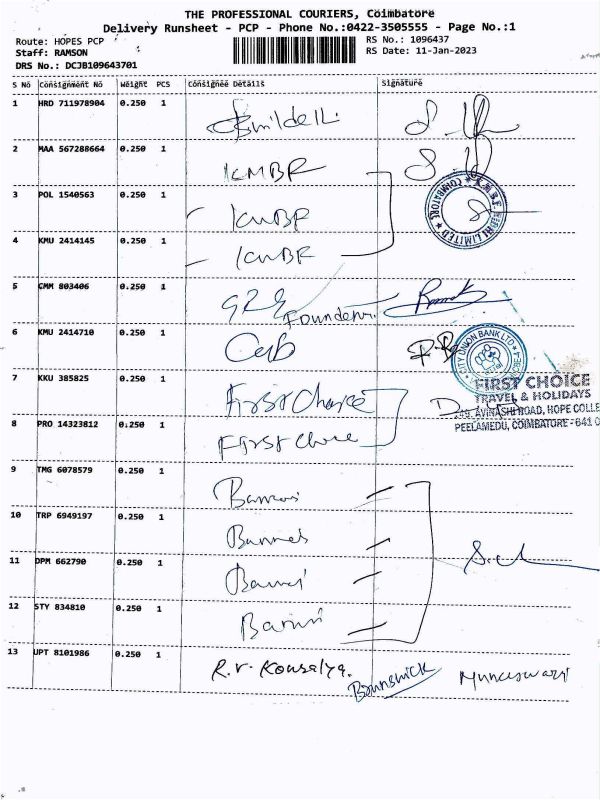 THE PROFESSIONAL COURIERS, Coimbatore
Delivery Runsheet - PCP - Phone No.:0422-3505555 - Page No.:1
Route: HOPES PCP
Staff: RAMSON
DRS No.: DCJB109643701
RS No.: 1096437
RS Date: 11-Jan-2023
S No Consignment No Weight PCS Consignee Details Signature
1 HRD 711978904 0.250 1
2 MAA 567288664 0.250 1 KMBF
3 POL 1540563 0.250 1 KMBF
4 KMU 2414145 0.250 1 KMBF
COIMBATORE
LIMITED
5 CMM 803406 0.250 1 Foundern.
6 KMU 2414710 0.250 1 CUB
CITY UNION BANK LTD
7 KKU 385825 0.250 1 First Choice
FIRST CHOICE
TRAVEL & HOLIDAYS
AVINASHI ROAD, HOPE COLLE
PEELAMEDU, COIMBATORE-641 0
8 PRO 14323812 0.250 1 First choice
9 TMG 6078579 0.250 1
10 TRP 6949197 0.250 1
11 DPM 662790 0.250 1
12 STY 834810 0.250 1
13 UPT 8101986 0.250 1 R.V. Kousalya. Brunswick Muneeswari